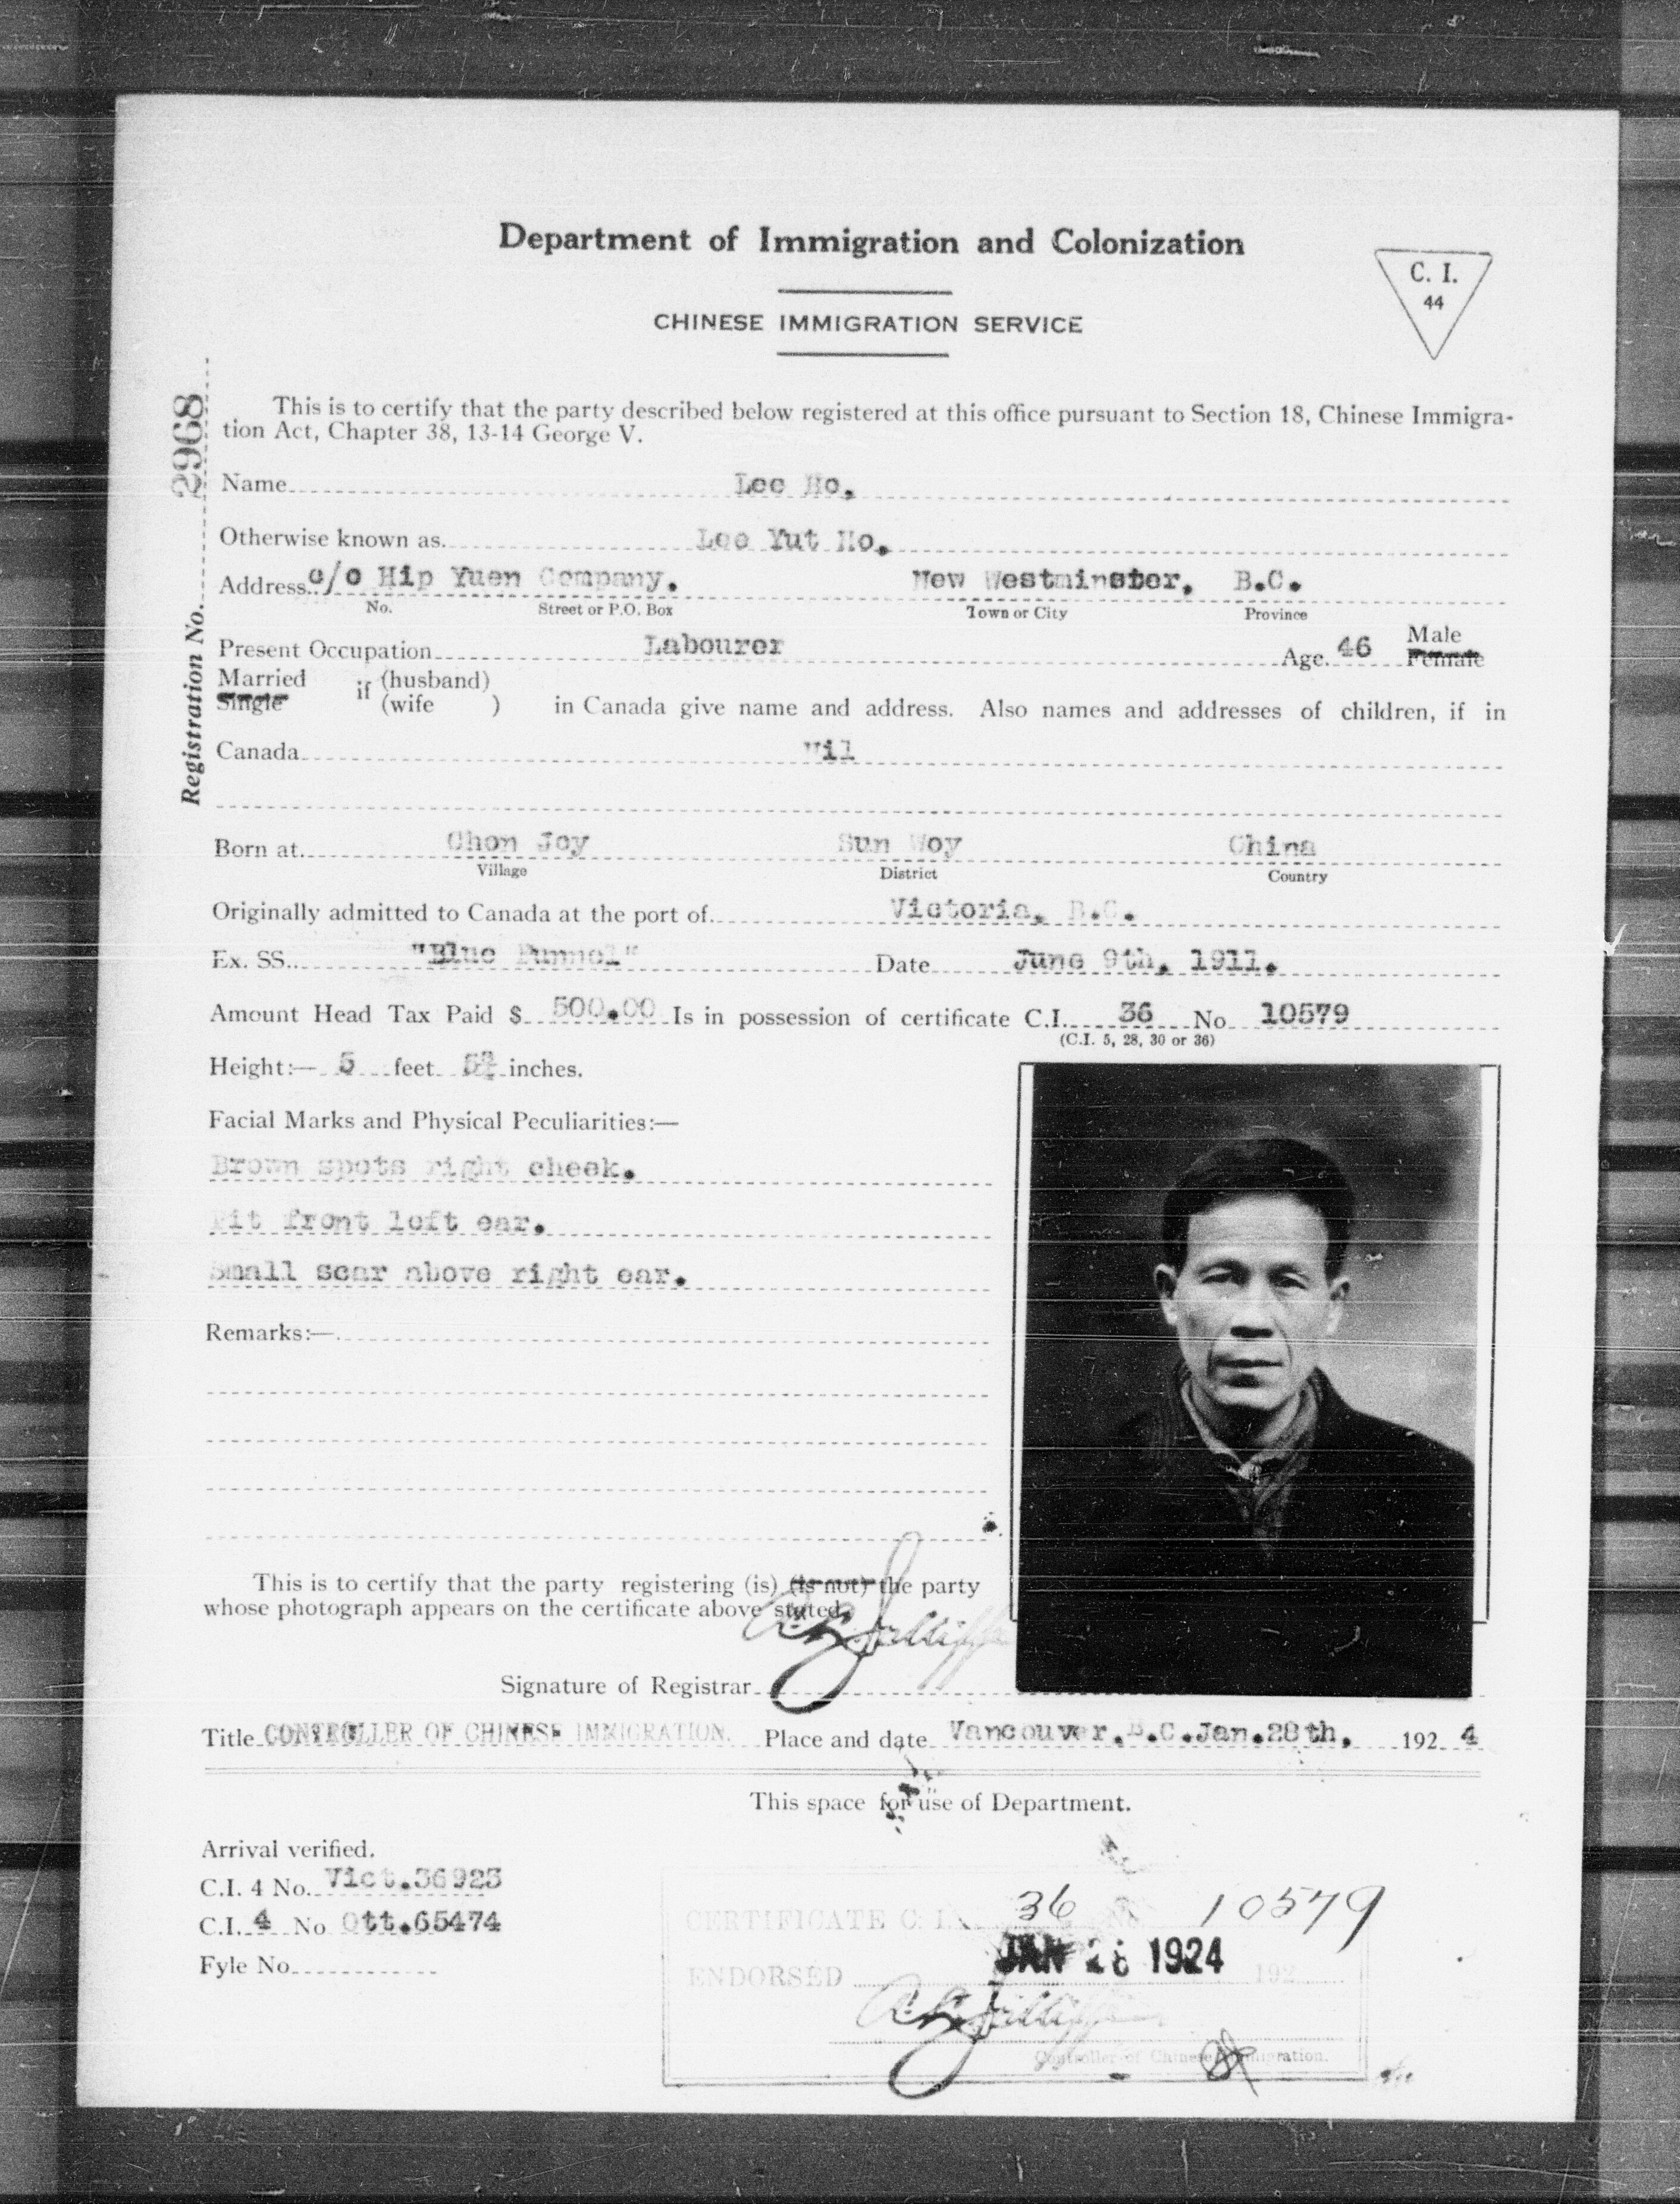 Department of Immigration and Colonization
C. I.
44
CHINESE IMMIGRATION SERVICE
Registration No. 2968
This is to certify that the party described below registered at this office pursuant to Section 18, Chinese Immigra-
tion Act, Chapter 38, 13-14 George V.
Name Lee Ho,
Otherwise known as. Lee Yut Ho,
Address c/o Hip Yuen Company. New Westminster, B.C.
No. Street or P.O. Box Town or City Province
Present Occupation Labourer Age. 46 Male Female
Married Single if (husband) (wife ) in Canada give name and address. Also names and addresses of children, if in
Canada Nil
Born at Chon Joy Sun Woy China
Village District Country
Originally admitted to Canada at the port of Victoria, B.C.
Ex. SS. "Blue Funnel" Date June 9th, 1911.
Amount Head Tax Paid $ 500.00 Is in possession of certificate C.I. 36 No 10579
(C.I. 5, 28, 30 or 36)
Height:— 5 feet inches.
Facial Marks and Physical Peculiarities:—
Brown spots right cheek.
Pit front left ear.
Small scar above right ear.
Remarks:—
This is to certify that the party registering (is) (is not) the party
whose photograph appears on the certificate above stated.
Signature of Registrar
Title CONTROLLER OF CHINESE IMMIGRATION. Place and date Vancouver.B.C.Jan.28th, 192 4
This space for use of Department.
Arrival verified.
C.I. 4 No. Vict.36923
C.I. 4 No Ott.65474
Fyle No
CERTIFICATE C. I. 36 No 10579
ENDORSED JAN 28 1924 192
Controller of Chinese Immigration.